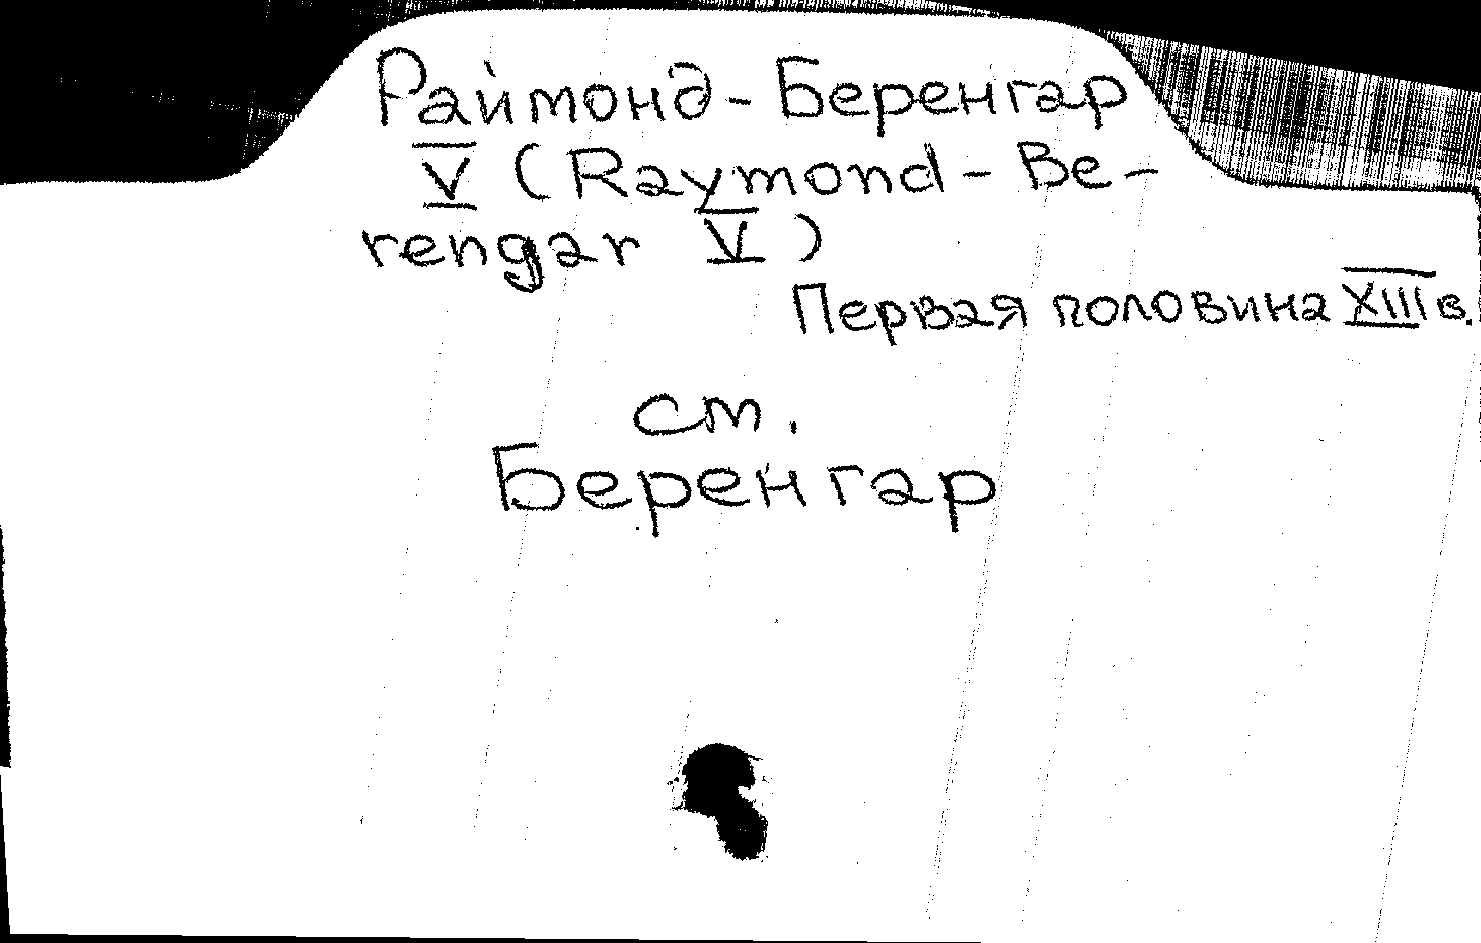 Раймонд-Беренгар
V (Raymond-Be-
rengar V)
Первая половина XIII в.
см.
Беренгар